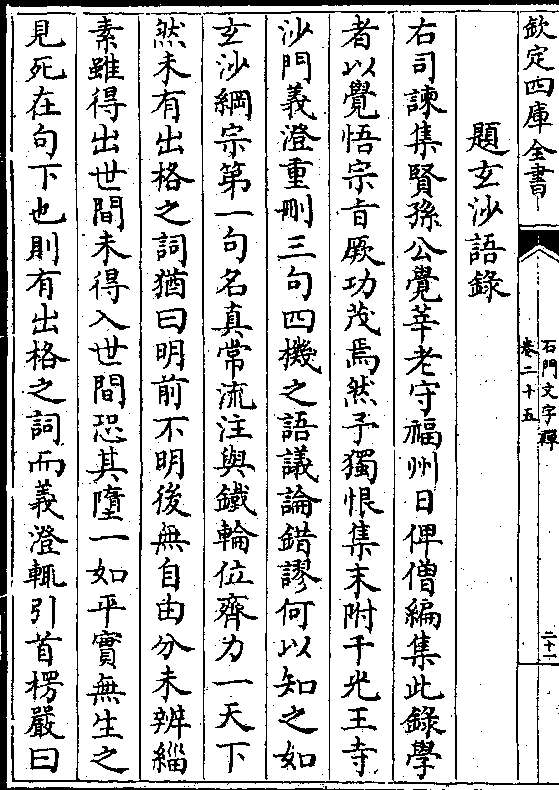 欽定四庫全書
石門文字禪
卷二十五
二十一
題玄沙語錄
右司諫集賢孫公覺莘老守福州日俾僧編集此錄學
者以覺悟宗旨厥功茂焉然予獨恨集末附干光王寺
沙門義澄重刪三句四機之語議論錯謬何以知之如
玄沙綱宗第一句名真常流注與鐵輪位齊力一天下
然未有出格之詞猶曰明前不明後無自由分未辨緇
素雖得出世間未得入世間恐其墮一如平實無生之
見死在句下也則有出格之詞而義澄輒引首楞嚴曰